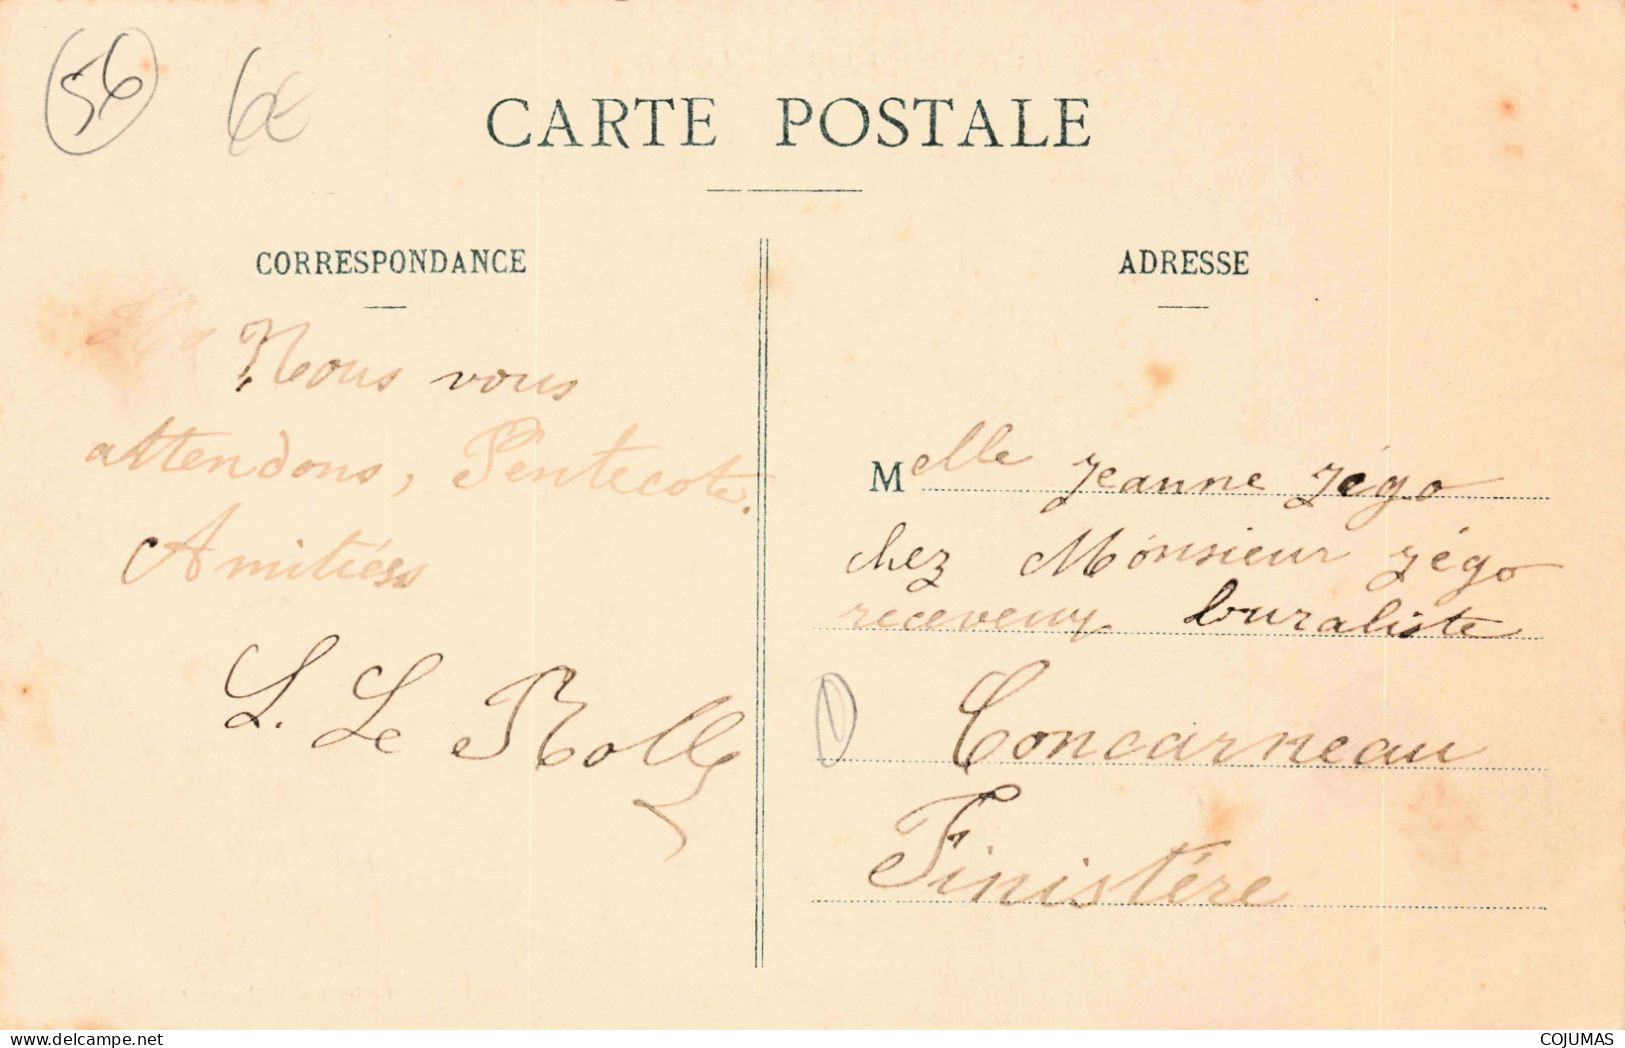 56
6€
CARTE POSTALE
CORRESPONDANCE
Nous vous
attendons, Pentecote.
Amitiéss
L. Le Rolly
ADRESSE
Melle Jeanne Jégo
chez Monsieur Jégo
receveur buraliste
Concarneau
Finistére
delcampe.net
COJUMAS